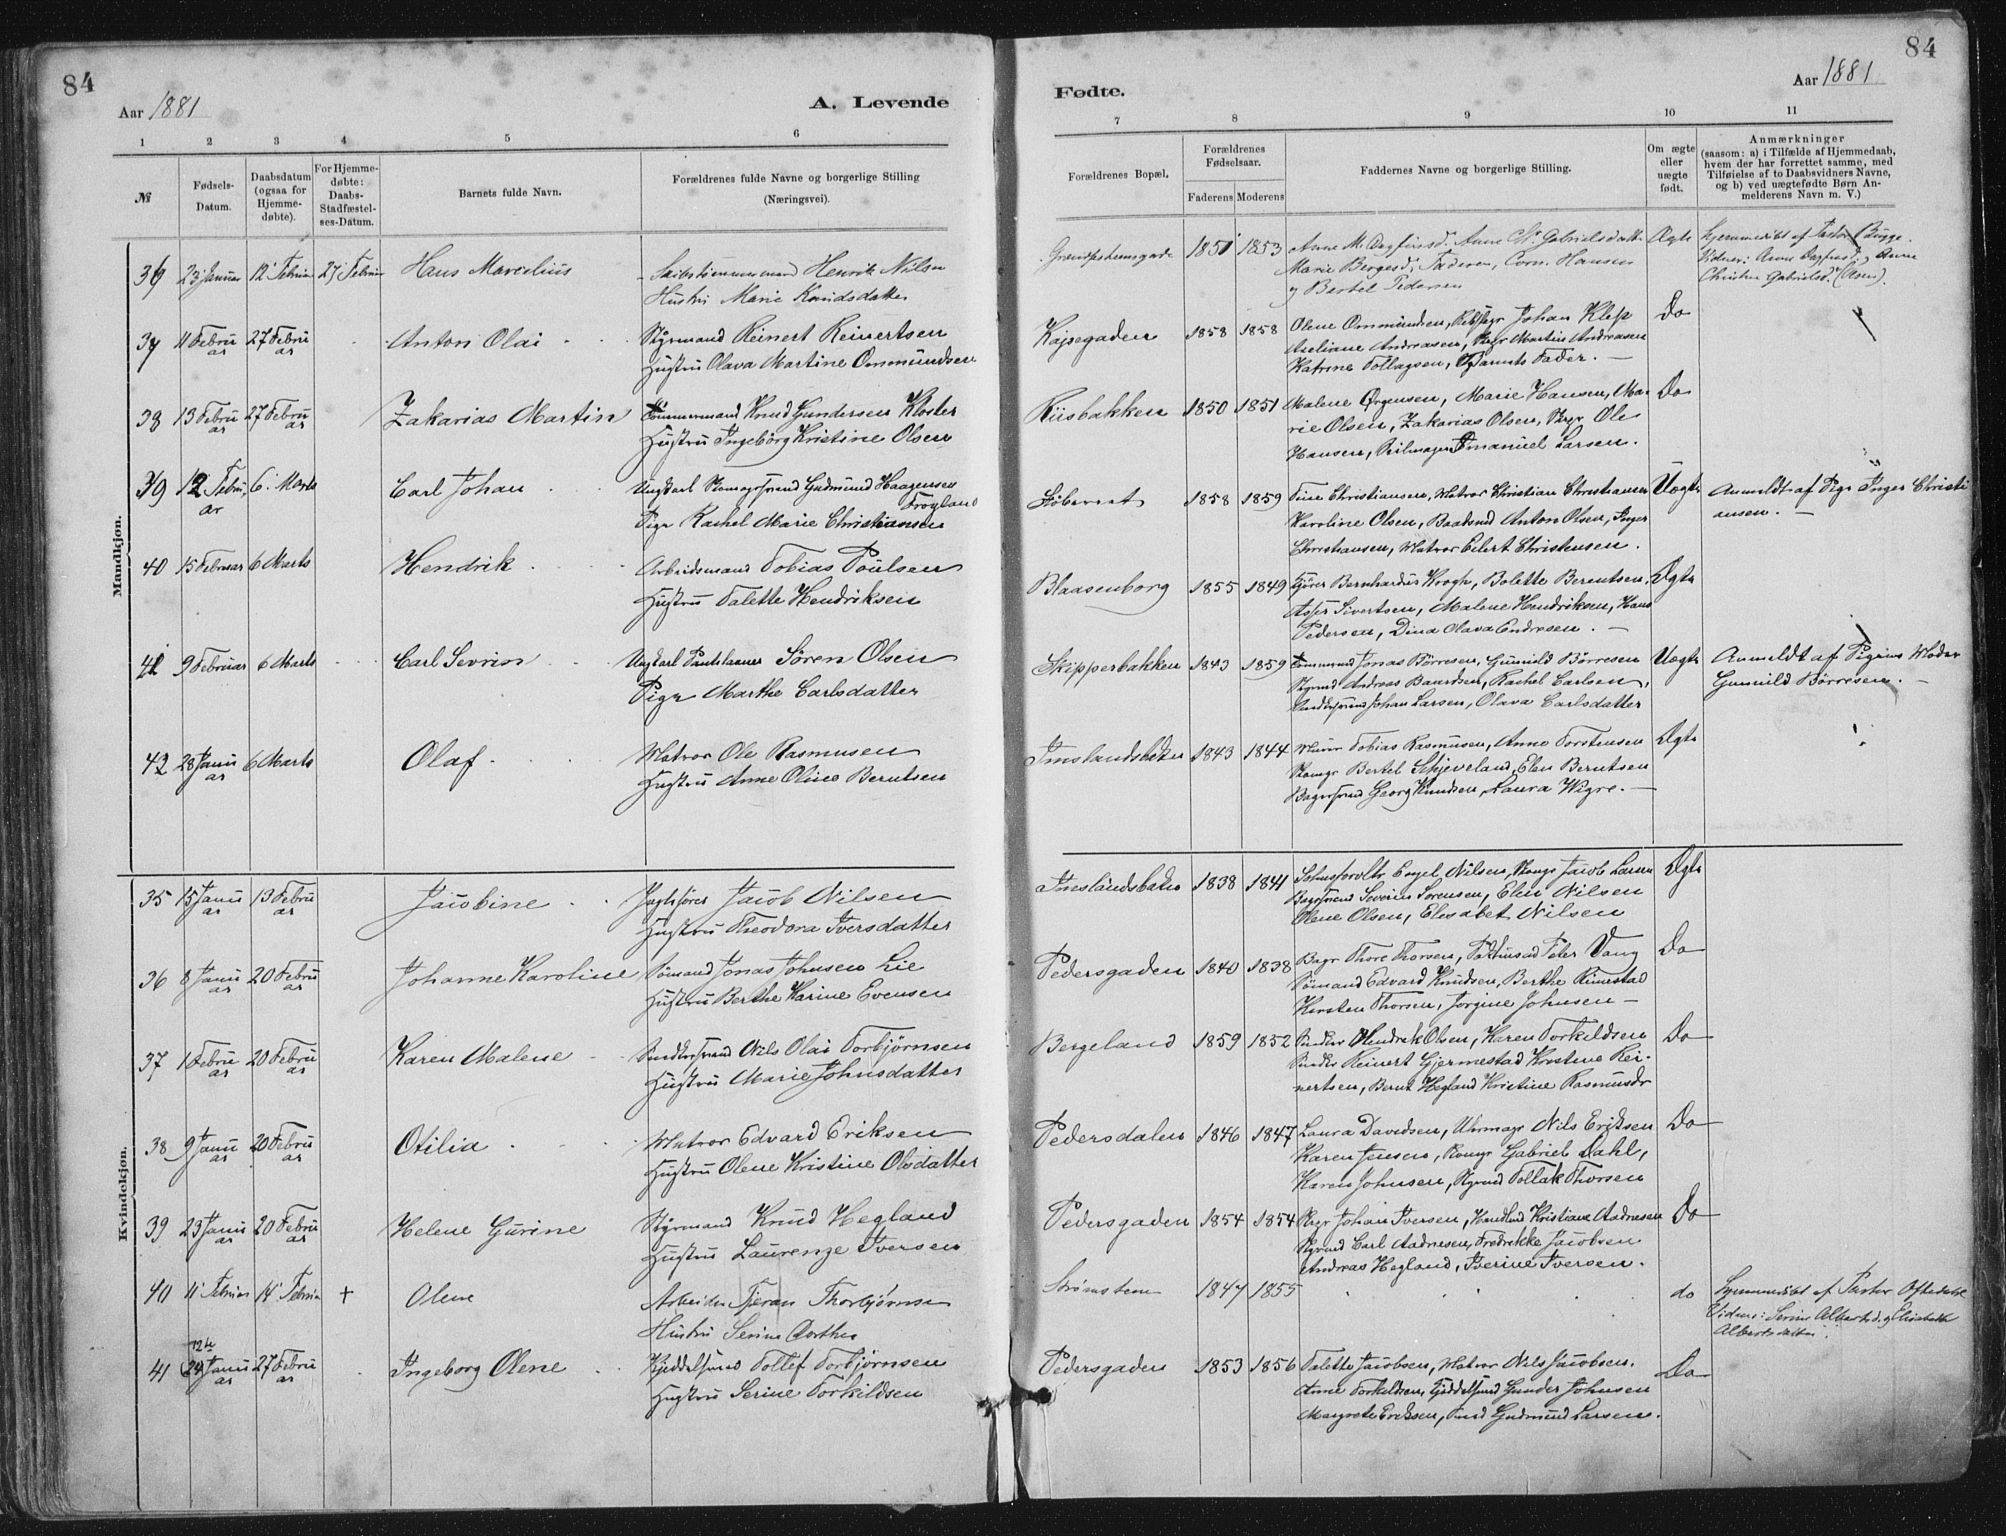 84
Aar 1881
A. Levende
1 2 3 4 5 6
№
Fødsels-
Datum.
Daabsdatum
(ogsaa for
Hjemme-
døbte).
For Hjemme-
døbte:
Daabs-
Stadfæstel-
ses-Datum.
Barnets fulde Navn.
Forældrenes fulde Navne og borgerlige Stilling
(Næringsvei).
Mandkjøn.
36 23 Januar 12 Februar 27 Februar Hans Marcelius Skibstimmermand Henrik Nilsen
Hustru Marie Knudsdatter
37 11 Febru 27 Febru Anton Olai Styrmand Reinert Reinertsen
ar ar Hustru Olava Martine Ommundsen
38 13 Febru 27 Febru Zakarias Martin Tømmermand Knud Gundersen Kloster
ar ar Hustru Ingeborg Kristine Olsen
39 12 Febru 6 Marts Carl Johan Ungkarl Gudmund Haagensen
ar Frøyland
Pige Rachel Marie Christiansen
40 15 Februar 6 Marts Hendrik Arbeidsmand Tobias Poulsen
Hustru Talette Hendriksen
41 9 Februar 6 Marts Carl Sevrin Ungkarl Søren Olsen
Pige Marthe Carlsdatter
42 28 Janu 6 Marts Olaf Matros Ole Rasmusen
ar Hustru Anne Oline Berntsen
Kvindekjøn.
35 15 Janu 13 Febru Jacobine Jagtfører Jacob Nilsen
ar ar Hustru Theodora Iversdatter
36 8 Janu 20 Febru Johanne Karoline Sømand Jonas Johnsen Lie
ar ar Hustru Berthe Karine Evensen
37 1 Febru 20 Febru Karen Malene Nils Olai Torbjørnsen
ar ar Hustru Marie Johnsdatter
38 9 Janu 20 Febru Otilia Matros Edvard Eriksen
ar ar Hustru Olene Kristine Olsdatter
39 23 Janu 20 Febru Helene Gurine Styrmand Knud Hegland
ar ar Hustru Laurenze Iversen
40 11 Februar 14 Februar + Olene Arbeider Tjeran Thorbjørnsen
Hustru Serine Dorthea
41 24 Janu 27 Febru Ingeborg Olene Tollef Torbjørnsen
ar ar Hustru Serine Torkildsen
84
Aar 1881
Fødte.
7 8 9 10 11
Forældrenes Bopæl.
Forældrenes
Fødselsaar.
Faderens Moderens
Faddernes Navne og borgerlige Stilling.
Om ægte
eller
uægte
født.
Anmærkninger
(saasom: a) i Tilfælde af Hjemmedaab,
hvem der har forrettet samme, med
Tilføielse af to Daabsvidners Navne,
og b) ved uægtefødte Børn An-
melderens Navn m. V.)
1851 1853 Anne M. Dagfinsd. Anne Ch. Gabrielsdatter Ægte Hjemmedøbt af Pastor Bugge.
Marie Bergesd., Faderen, Corn. Hansen Vidner: Anne Dagfinsd. og Anne
og Bertel Pedersen Christine Gabrielsd.
Kojsegaden 1858 1858 Olene Ommundsen, Johan Klep Do
Aseliane Andreasen, Martin Andreasen
Katrine Tollagsen, Barnets Fader.
Riisbakken 1850 1851 Malene Ørgensen, Marie Hansen, Ma- Do
rie Olsen, Zakarias Olsen, Ole
Hansen, Seilmager Emanuel Larsen.
1858 1859 Tine Christiansen, Matros Christian Christiansen Uægte Anmeldt af Pige Inger Christi
Karoline Olsen, Baadsmd Anton Olsen, Inger ansen.
Christiansen, Matros Eilert Christensen.
Blaasenborg 1855 1849 Bernhardus Krogh, Bolette Berentsen, Ægte
Asser Sivertsen, Malene Hendriksen, Hans
Pedersen, Dina Olava Endresen.
Skipperbakken 1843 1859 Tømmermd Jonas Børresen, Gunild Børresen Uægte Anmeldt af Pigens Moder
Styrmd Andreas Baardsen, Rachel Carlsen, Gunnild Børresen.
Johan Larsen, Olava Carlsdatter
Imslandsbaken 1843 1844 Murer Tobias Rasmusen, Anne Torstensen Ægte
Bertel Skjeveland, Elen Berntsen
Bagersvend Georg Knudsen, Laura Wigre.
Imslandsbaken 1838 1841 Engel Nilsen, Jacob Larsen Ægte
Bagersvend Severin Sørensen, Elen Nilsen
Olene Olsen, Elisabet Nilsen
Pedersgaden 1840 1838 Bager Thore Thorsen, Peter Vang Do
Sømand Edvard Knudsen, Berthe Rimestad
Kirsten Thorsen, Jorgine Johnsen
Bergeland 1859 1852 Hendrik Olsen, Karen Torkildsen Do
Reinert Gjermestad Kristine Rei-
nertsen, Bernt Hegland Kristine Rasmusdr
Pedersdalen 1846 1847 Laura Davidsen, Uhrmager Nils Eriksen Do
Karen Jensen, Gabriel Dahl,
Karen Johnsen, Styrmd Tollak Thorsen
Pedersgaden 1854 1854 Johan Iversen, Kristiane Aadnesen Do
Styrmd Carl Aadnesen, Fredrikke Jacobsen
Andreas Hegland, Iverine Iversen.
Strømsteen 1847 1855 do Hjemmedøbt af Pastor Oftedal
Vidner: Serine Albertsd. og Elisabeth
Albertsdatter.
Pedersgaden 1853 1856 Talette Jacobsen, Matros Nils Jacobsen. Do
Anne Torkildsen, Gunder Johnsen
Margrete Eriksen, Gudmund Larsen.